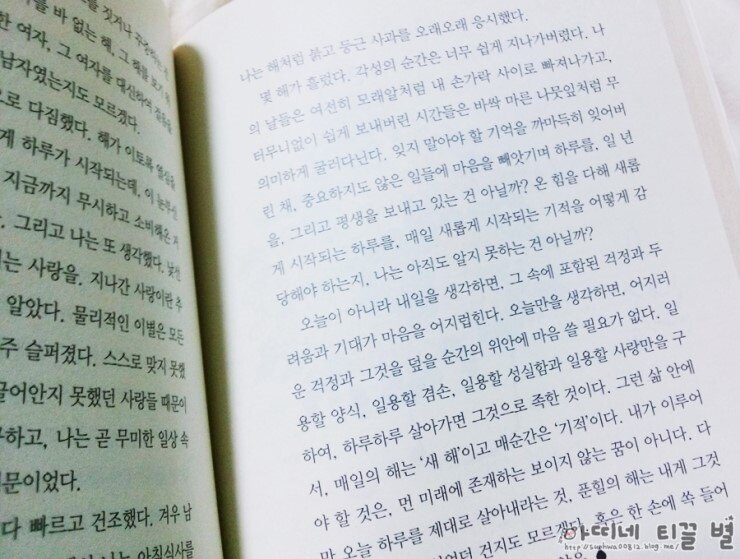 를 짓거나
를 바 없는 해, 그 해를 보기 위
한 여자, 그 여자를 대신하여
남자였는지도 모르겠다.
으로 다짐했다. 해가 이토록 열심을
게 하루가 시작되는데, 이 눈부신
지금까지 무시하고 소비해온 거
. 그리고 나는 또 생각했다. 낯선
는 사랑을. 지나간 사랑이란 추
알았다. 물리적인 이별은 모든
주 슬퍼졌다. 스스로 맞지 못했
끌어안지 못했던 사랑들 때문이
하고, 나는 곧 무미한 일상 속
문이었다.
다 빠르고 건조했다. 겨우 남
는 아침식사를
나는 해처럼 붉고 둥근 사과를 오래오래 응시했다.
몇 해가 흘렀다. 각성의 순간은 너무 쉽게 지나가버렸다. 나
의 날들은 여전히 모래알처럼 내 손가락 사이로 빠져나가고,
터무니없이 쉽게 보내버린 시간들은 바싹 마른 나뭇잎처럼 무
의미하게 굴러다닌다. 잊지 말아야 할 기억을 까마득히 잊어버
린 채, 중요하지도 않은 일들에 마음을 빼앗기며 하루를, 일 년
을, 그리고 평생을 보내고 있는 건 아닐까? 온 힘을 다해 새롭
게 시작되는 하루를, 매일 새롭게 시작되는 기적을 어떻게 감
당해야 하는지, 나는 아직도 알지 못하는 건 아닐까?
오늘이 아니라 내일을 생각하면, 그 속에 포함된 걱정과 두
려움과 기대가 마음을 어지럽힌다. 오늘만을 생각하면, 어지러
운 걱정과 그것을 덮을 순간의 위안에 마음 쓸 필요가 없다. 일
용할 양식, 일용할 겸손, 일용할 성실함과 일용할 사랑만을 구
하여, 하루하루 살아가면 그것으로 족한 것이다. 그런 삶 안에
서, 매일의 해는 '새 해'이고 매순간은 '기적'이다. 내가 이루어
야 할 것은, 먼 미래에 존재하는 보이지 않는 꿈이 아니다. 다
만 오늘 하루를 제대로 살아내라는 것, 푼힐의 해는 내게 그것
었던 건지도 모르겠다. 혹은 한 손에 쏙 들어
아띠네 티끌 별